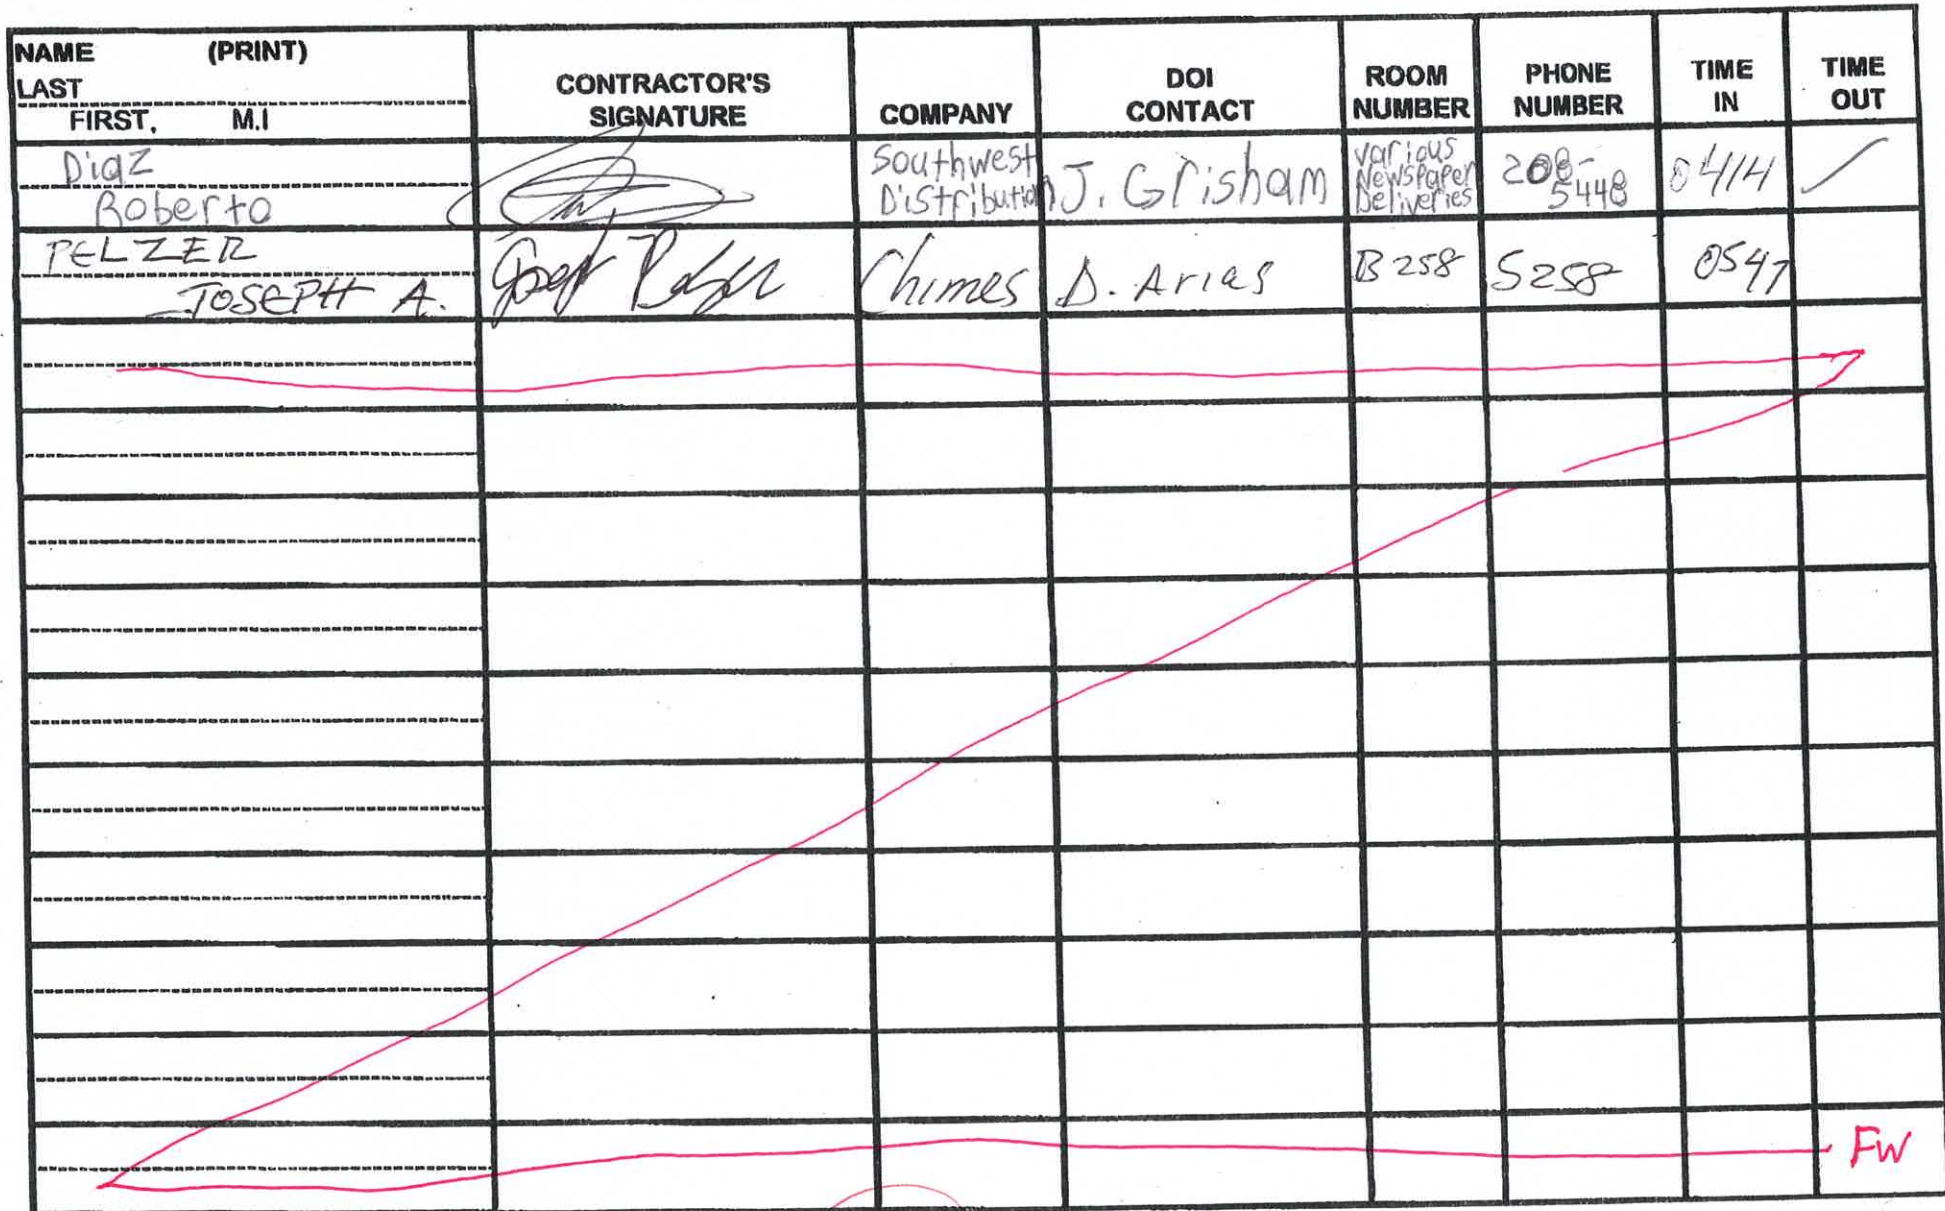 NAME (PRINT)
LAST
FIRST, M.I
CONTRACTOR'S
SIGNATURE
COMPANY
DOI
CONTACT
ROOM
NUMBER
PHONE
NUMBER
TIME
IN
TIME
OUT
Diaz
Roberto
Southwest
Distribution
J. Grisham
various
Newspaper
Deliveries
208-
5448
0414
PELZER
JOSEPH A.
Chimes
D. Arias
B258
5258
0547
FW